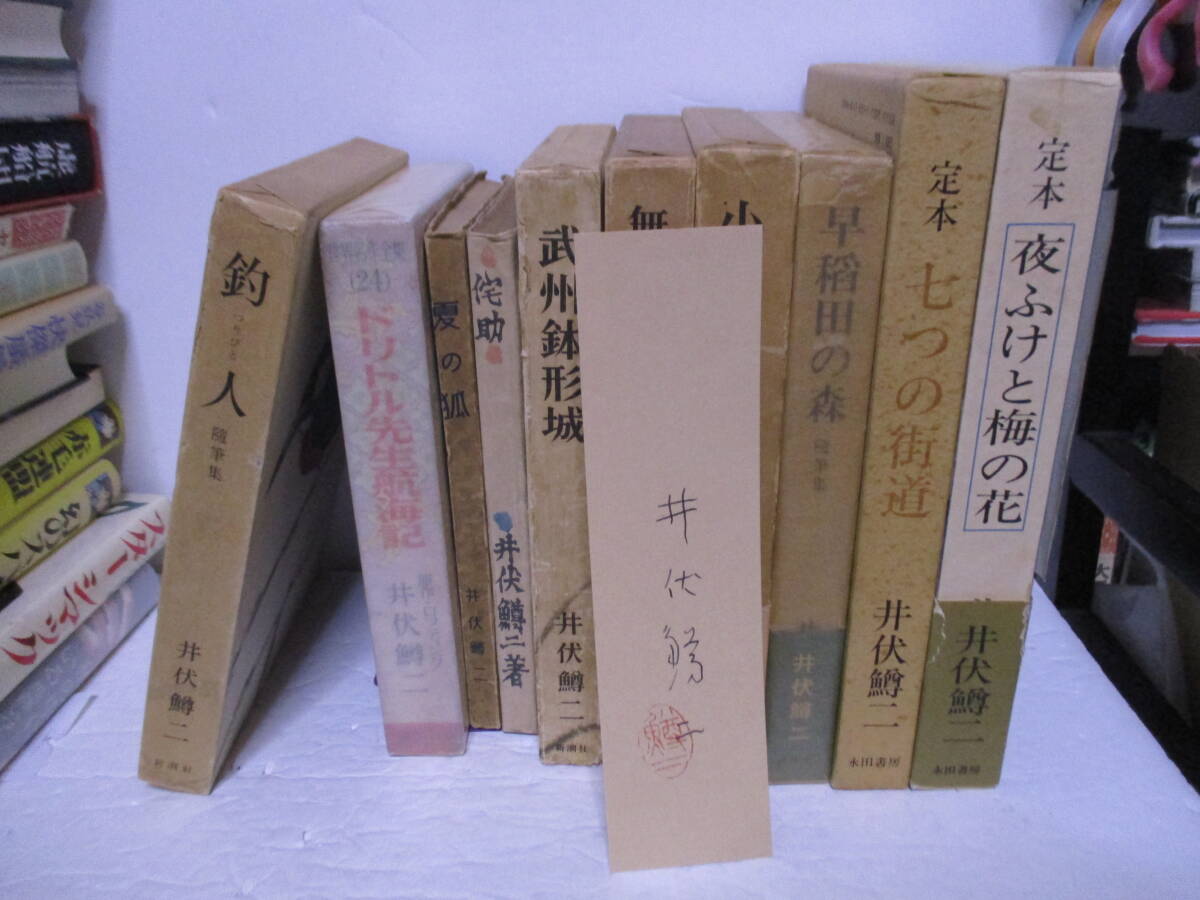 釣人
つりびと
随筆集
井伏鱒二
新潮社
世界名作全集
(24)
ドリトル先生航海記
井伏鱒二
夏の狐
井伏鱒二
侘助
井伏鱒二著
武州鉢形城
井伏鱒二
新潮社
無
小
井伏鱒二
早稲田の森
随筆集
井伏鱒二
定本
七つの街道
井伏鱒二
永田書房
定本
夜ふけと梅の花
井伏鱒二
永田書房
スタージマック